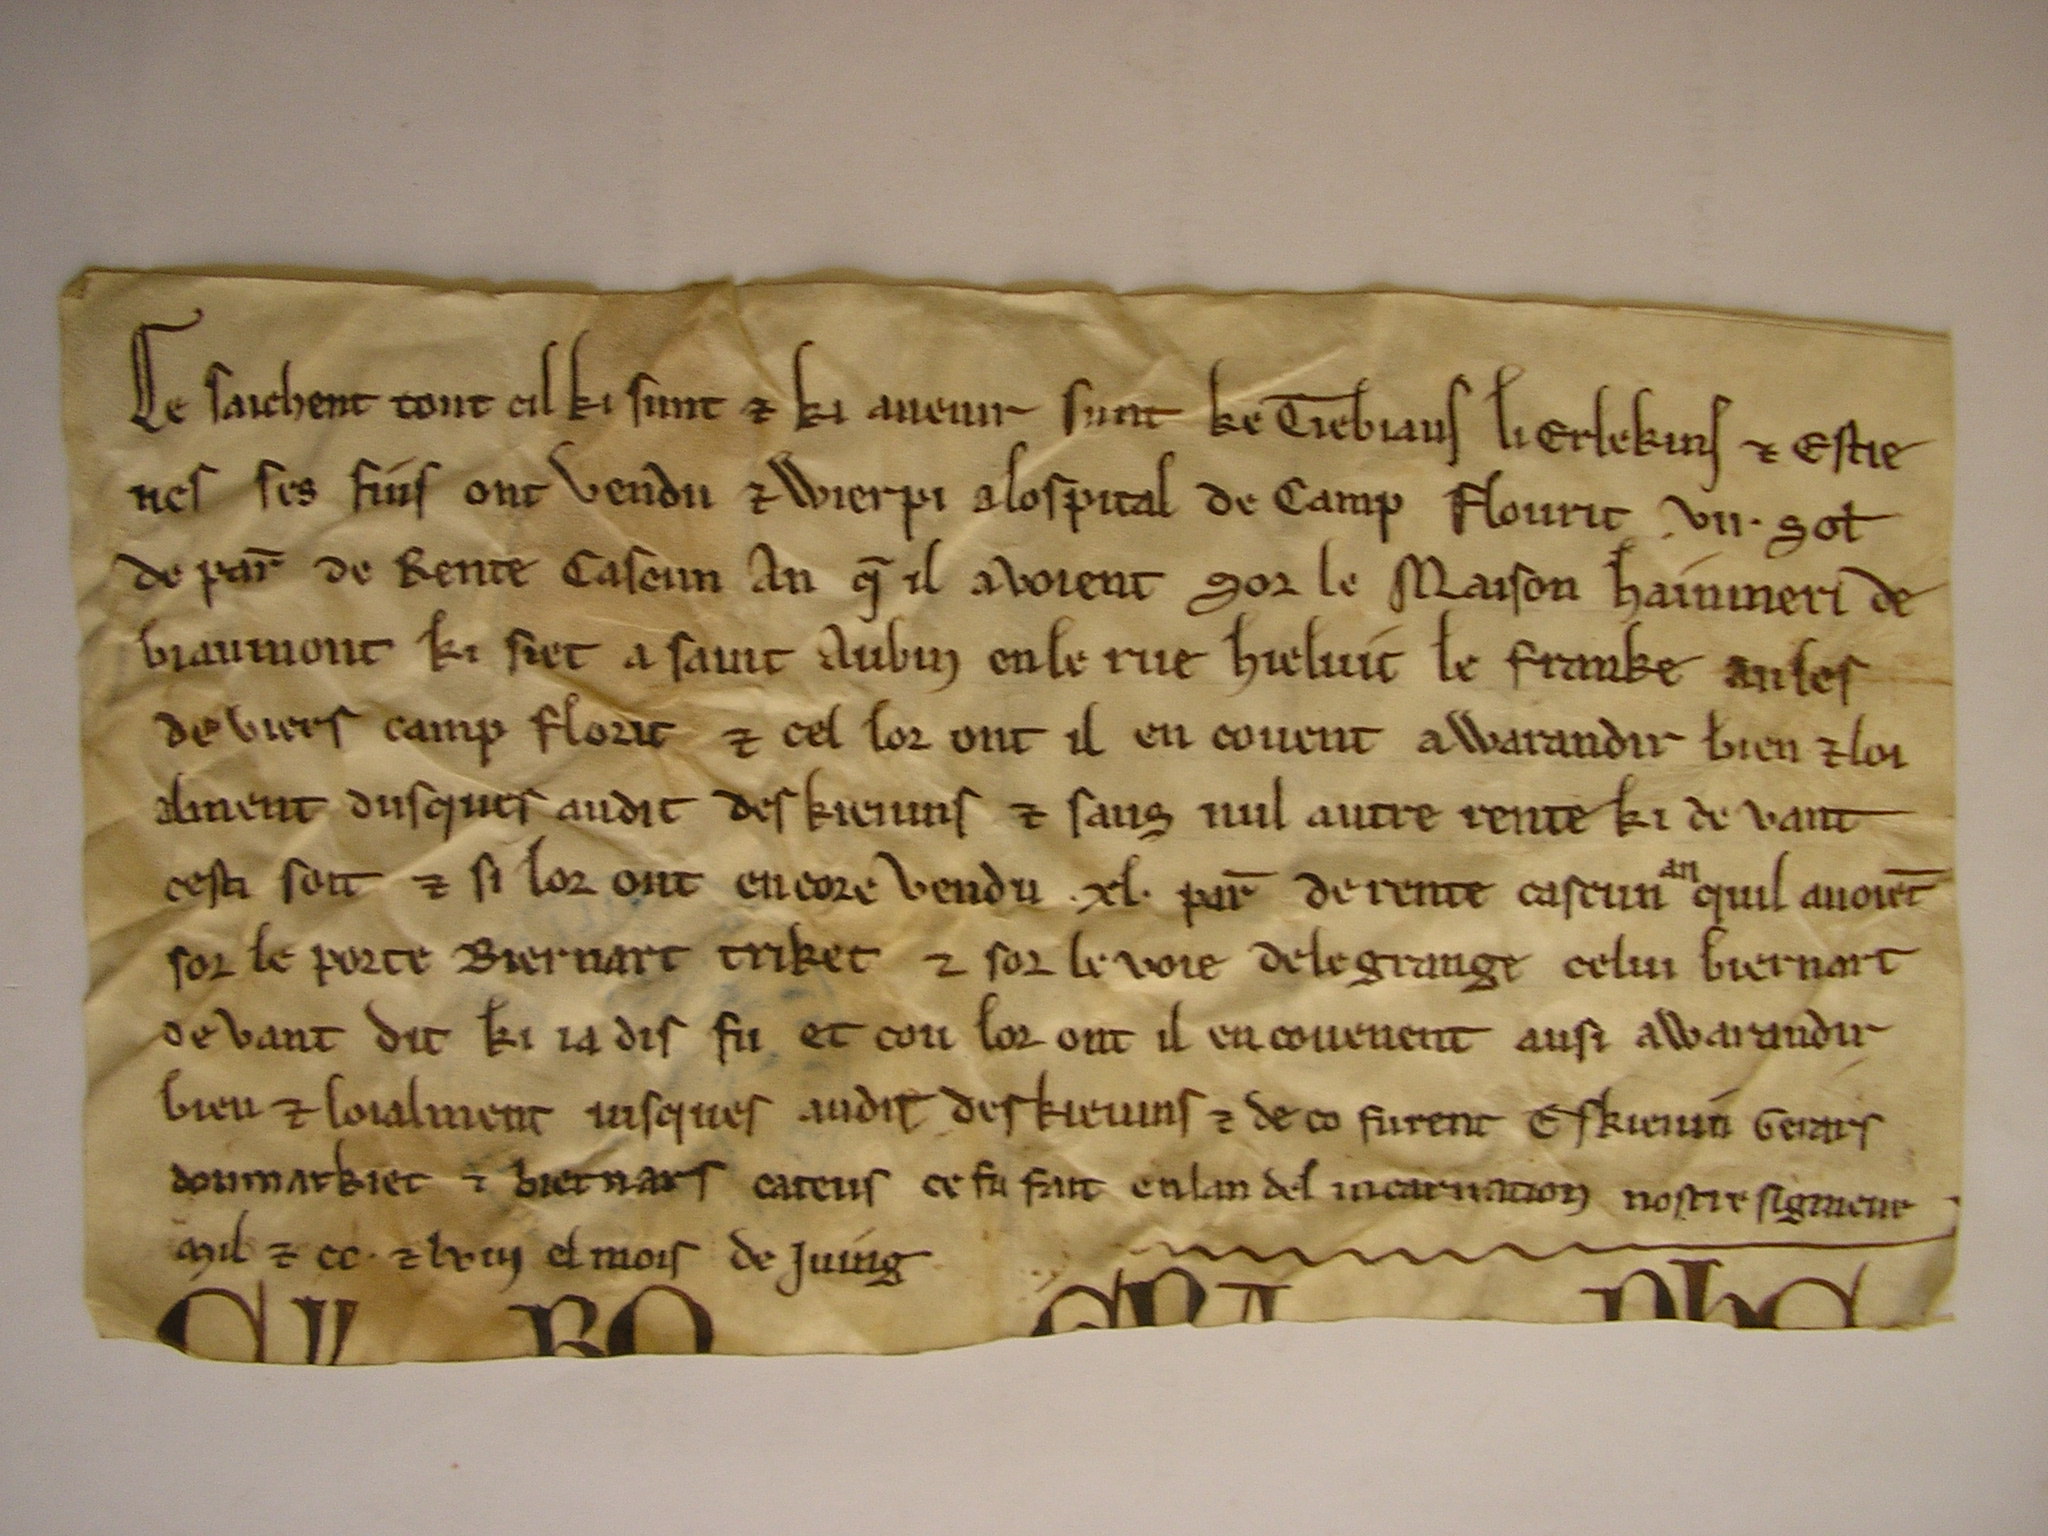 Ce saichent tout cil ki sunt ⁊ ki auenir sunt ke Tiebiaus li Erlekins ⁊ Estie
nes ses fius ont vendu ⁊ Wierpi alospital de Camp flourit .vii. sol
de par̄ de Rente Cascun An q̄ il avoient sor le Maison haimmeri de
biaumont ki siet a saint Aubin en le rue hieluit le franke au les
de viers camp florit ⁊ cel lor ont il en couent a Warandir bien ⁊ loi
alment dusques audit deskieuins ⁊ sans nul autre rente ki de vant
cesti soit ⁊ si lor ont encore vendu .xl. par̄ de rente cascun an quil auoiēt
sor le porte Biernart triket ⁊ sor le voie de le grange celui biernart
de vant dit ki ia dis fu et cou lor ont il en couenent ausi a Warandir
bien ⁊ loialment iusques audit deskieuins ⁊ de co furent Eskieuin Gerars
doumarkiet ⁊ biernars cateus ce fu fait en lan del incarnation nostre signieur
Mil ⁊ cc. ⁊ lxiij el mois de Juing
CYROGRAPHC